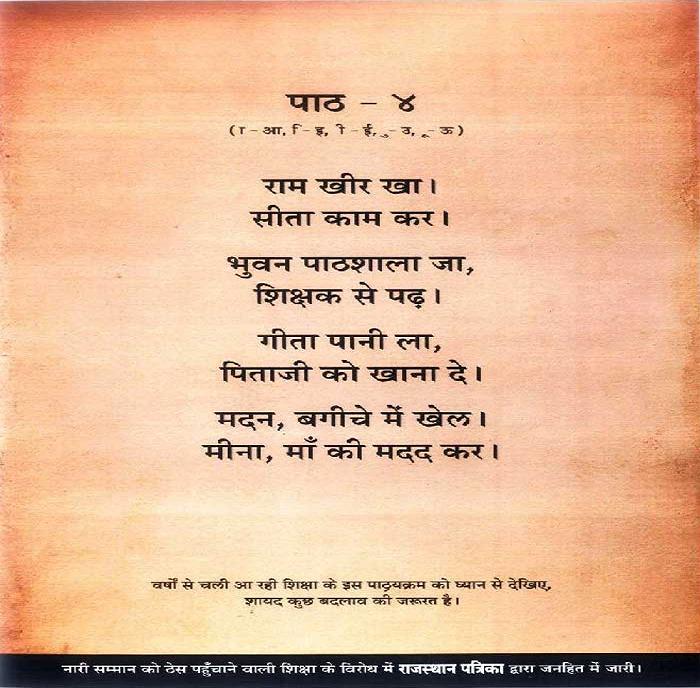 पाठ – ४
(ा-आ, ि-इ, ी-ई, ु-उ, ू-ऊ)
राम खीर खा।
सीता काम कर।
भुवन पाठशाला जा,
शिक्षक से पढ़।
गीता पानी ला,
पिताजी को खाना दे।
मदन, बगीचे में खेल।
मीना, माँ की मदद कर।
वर्षों से चली आ रही शिक्षा के इस पाठ्यक्रम को ध्यान से देखिए,
शायद कुछ बदलाव की जरूरत है।
नारी सम्मान को ठेस पहुँचाने वाली शिक्षा के विरोध में राजस्थान पत्रिका द्वारा जनहित में जारी।